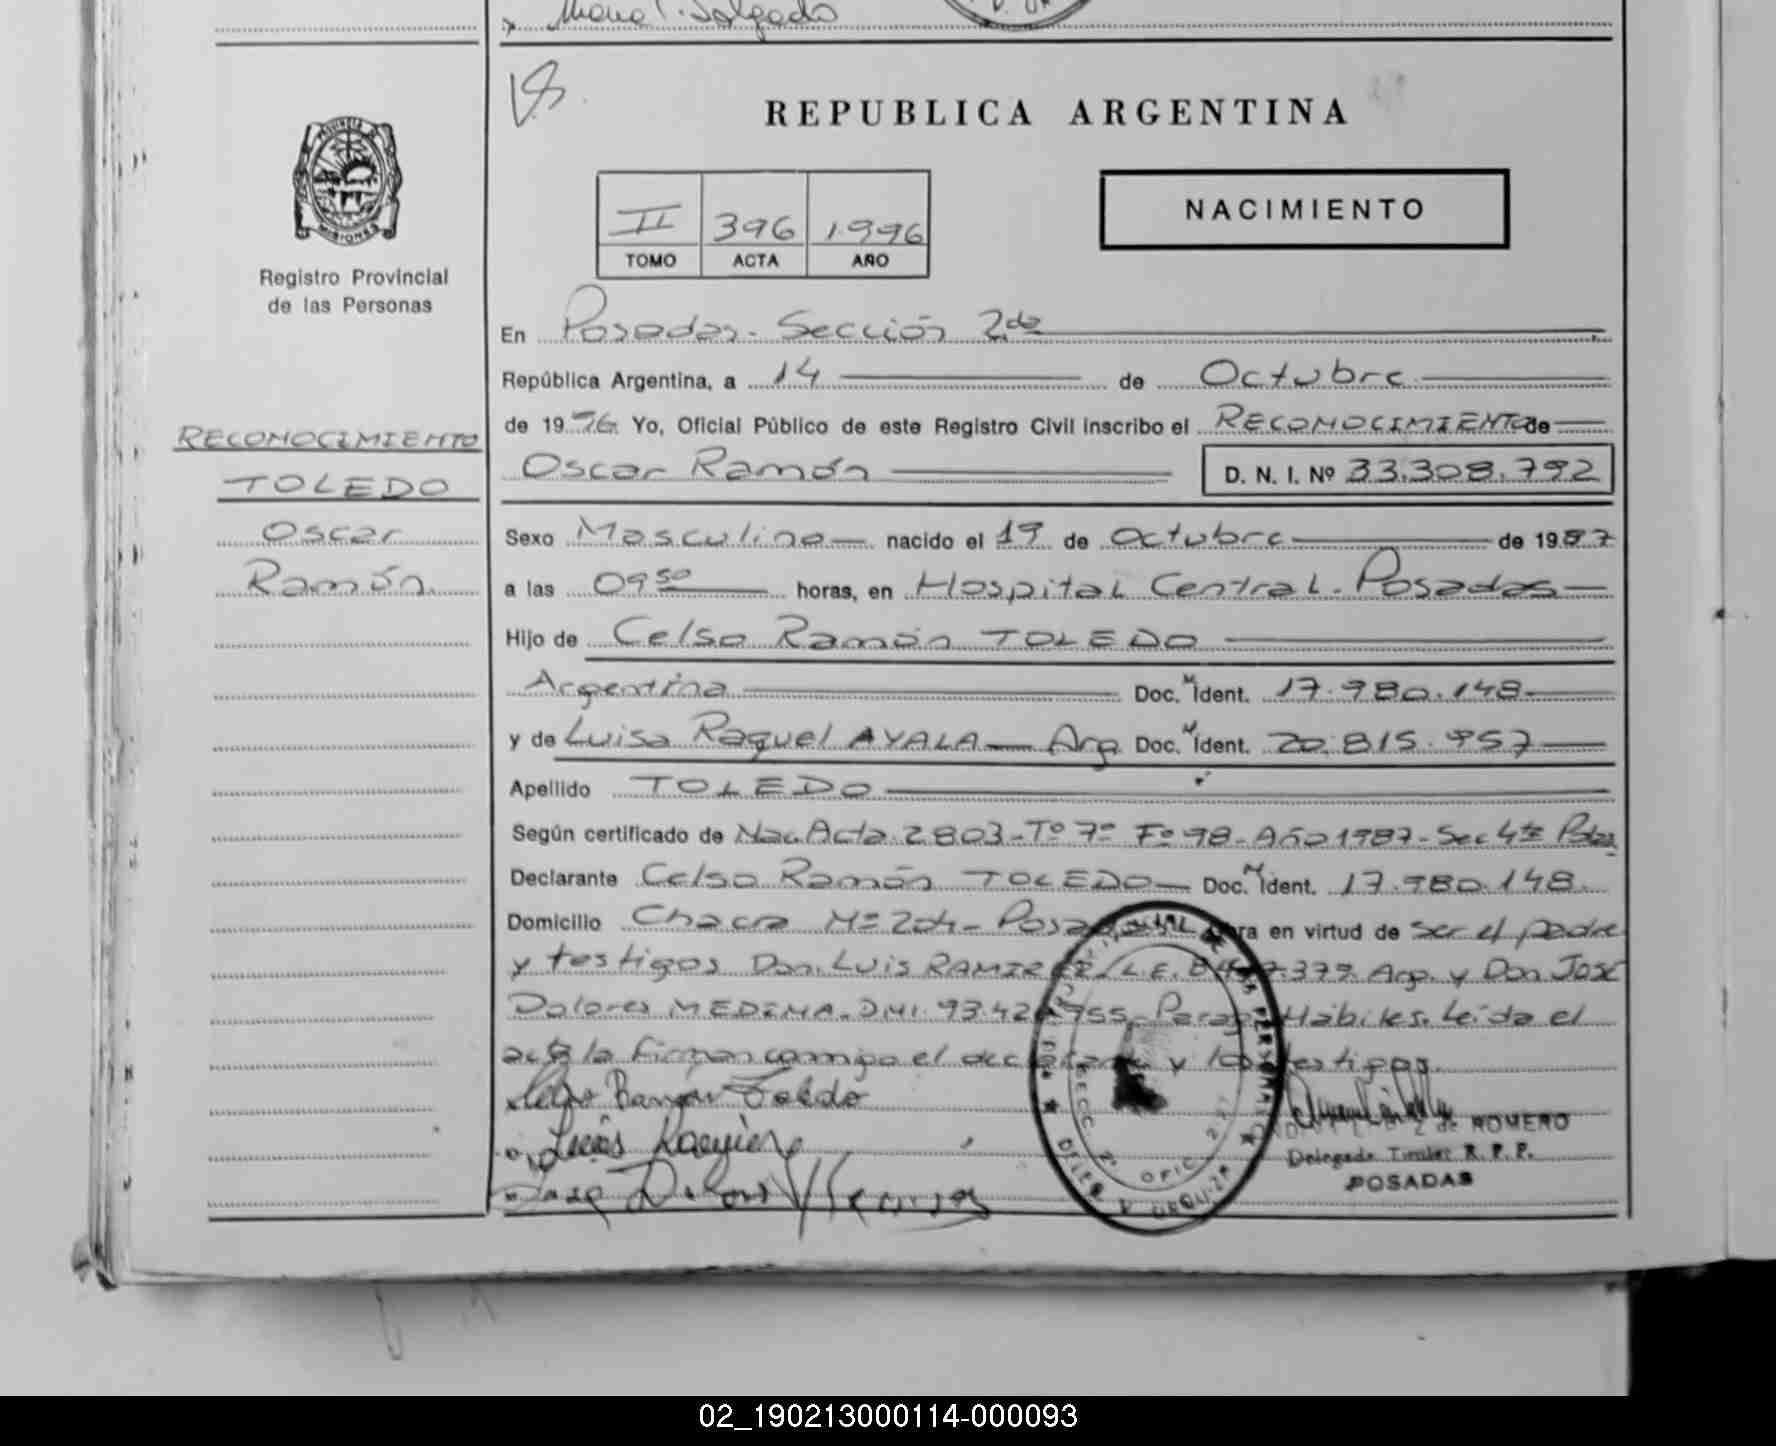 Salgado
REPUBLICA ARGENTINA
PROVINCIA DE
MISIONES
Registro Provincial
de las Personas
II 396 1996
TOMO ACTA AÑO
NACIMIENTO
En Posadas - Sección 2da
República Argentina, a 14 de Octubre
de 1996 Yo, Oficial Público de este Registro Civil inscribo el RECONOCIMIENTO de
Oscar Ramón D. N. I. Nº 33.308.792
RECONOCIMIENTO
TOLEDO
Oscar
Ramón
Sexo Masculino nacido el 19 de Octubre de 1987
a las 09 50 horas, en Hospital Central - Posadas
Hijo de Celso Ramón TOLEDO
Argentina Doc. M Ident. 17.980.148
y de Luisa Raquel AYALA Arg Doc. M Ident. 20.815.957
Apellido TOLEDO
Según certificado de Nac. Acta 2803 - Tº 7º Fº 98 - Año 1987 - Sec 4ta Pdas
Declarante Celso Ramón TOLEDO Doc. M Ident. 17.980.148
Domicilio Chacra Nº 204 - Posadas Obra en virtud de ser el padre
y testigos Don Luis RAMIREZ - L.E. Arg. y Don José
Dolores MEDINA - DNI. Hábiles. Leída el
acta la firman conmigo el declarante y los testigos.
Celso Ramón Toledo
de ROMERO
Delegada Titular R. P. P.
POSADAS
02_190213000114-000093